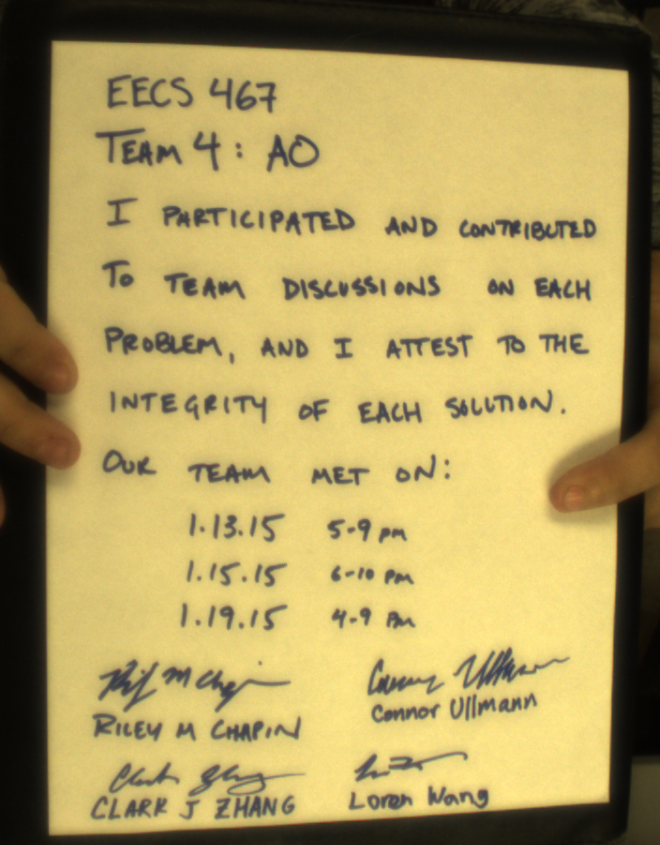 EECS 467
TEAM 4: AO
I PARTICIPATED AND CONTRIBUTED
TO TEAM DISCUSSIONS ON EACH
PROBLEM, AND I ATTEST TO THE
INTEGRITY OF EACH SOLUTION.
OUR TEAM MET ON:
1.13.15 5-9 pm
1.15.15 6-10 pm
1.19.15 4-9 pm
Riley M Chapin Connor Ullmann
RILEY M CHAPIN Connor Ullmann
Clark Zhang
CLARK J ZHANG Loren Wang